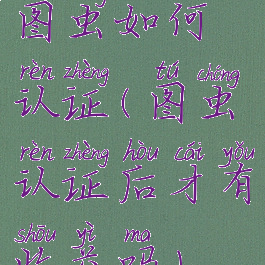 图虫如何
rèn zhèng tú chóng
认证(图虫
rèn zhèng hòu cái yǒu
认证后才有
shōu yì ma
收益吗)